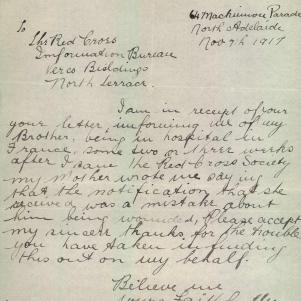 64 Mackinnon Parade
North Adelaide
Nov 7th 1917
To
The Red Cross
Information Bureau
Verco Bildings
North Terrace
I am in receipt of your
your letter, informing me of my
Brother, being in hospital in
France, some two or three weeks
after I saw the Red Cross Society
my Mother wrote me saying
that the notification that she
received was a mistake about
him being wounded, Please accept
my sincere thanks for the trouble
you have taken in finding
this out on my behalf.
Believe me
yours Faithfully